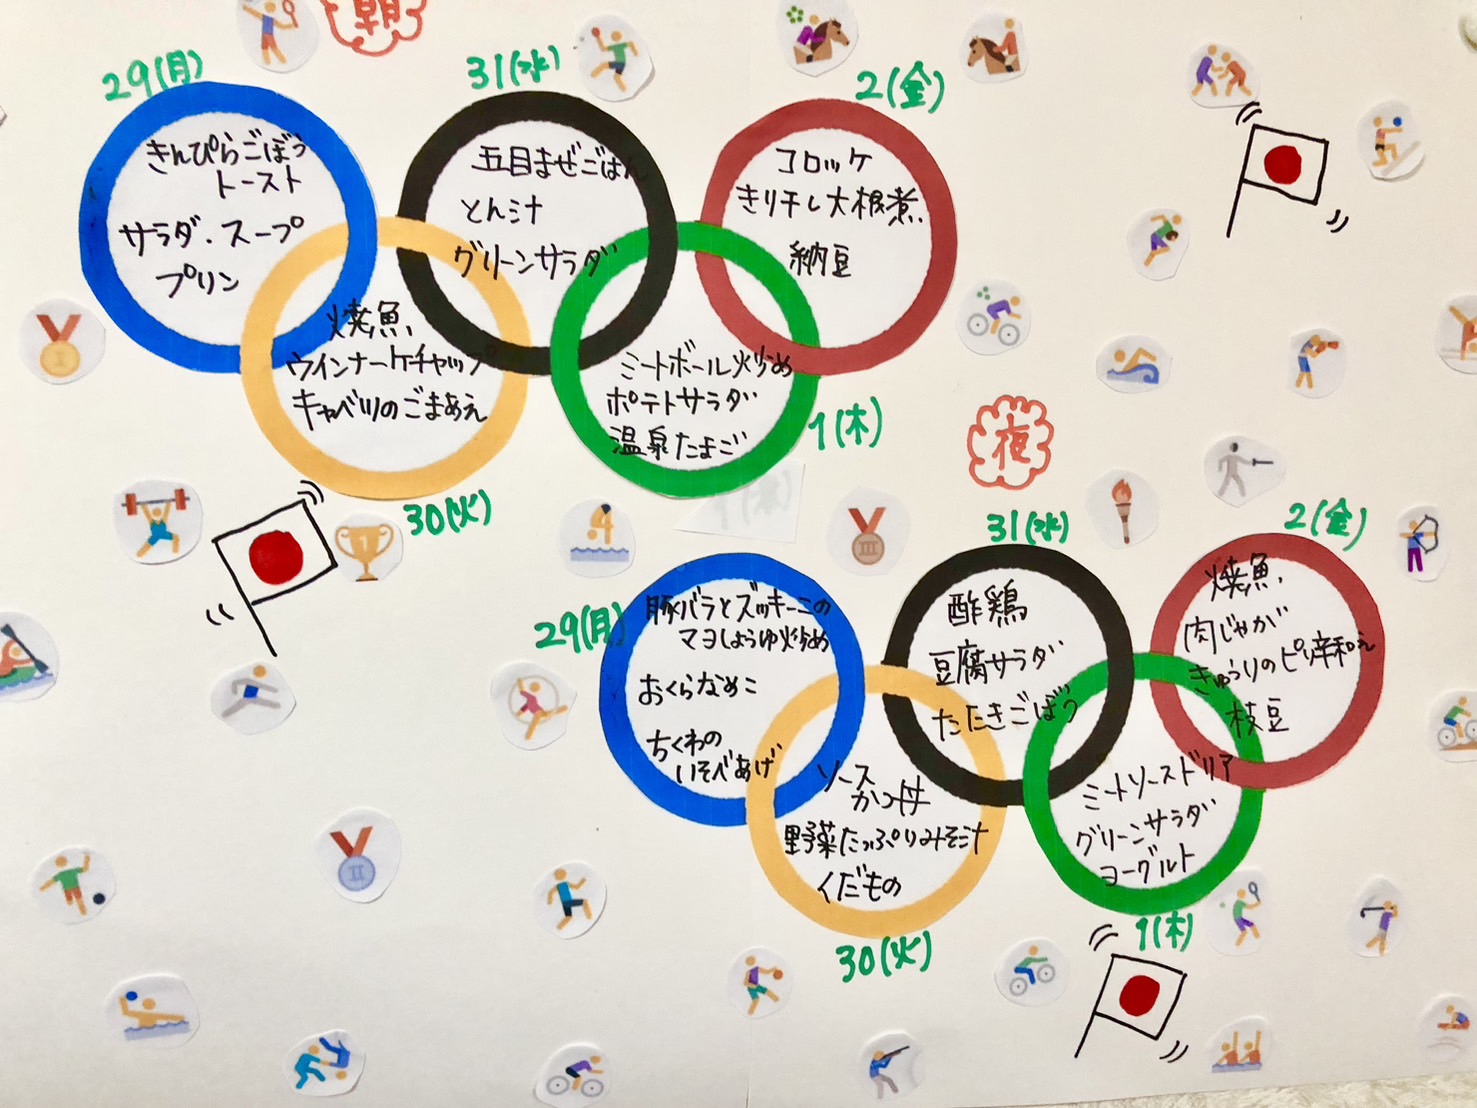 朝
29(月)
きんぴらごぼう
トースト
サラダ・スープ
プリン
30(火)
焼魚
ウインナーケチャップ
キャベツのごまあえ
31(水)
五目まぜごはん
とん汁
グリーンサラダ
1(木)
ミートボール炒め
ポテトサラダ
温泉たまご
2(金)
コロッケ
きり干し大根煮
納豆
夜
29(月)
豚バラとズッキーニの
マヨしょうゆ炒め
おくらなめこ
ちくわの
いそべあげ
30(火)
ソース
かつ丼
野菜たっぷりみそ汁
くだもの
31(水)
酢鶏
豆腐サラダ
たたきごぼう
1(木)
ミートソースドリア
グリーンサラダ
ヨーグルト
2(金)
焼魚
肉じゃが
きゅうりのピリ辛和え
枝豆